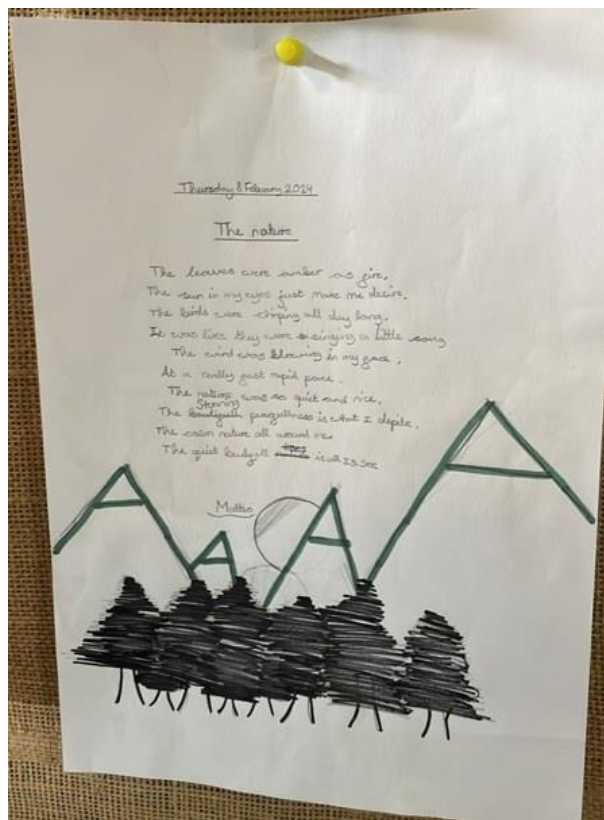 Thursday 8 February 2024
The nature
The leaves were amber as fire,
The sun in my eyes just make me desire.
The birds were chiping all day long,
It was like they were singing a little song
The wind was blowing in my face,
At a really fast rapid pace.
The nature was so quiet and nice.
Stunning
The is what I depite.
The calm nature all around me
The quiet is all I see
Matteo